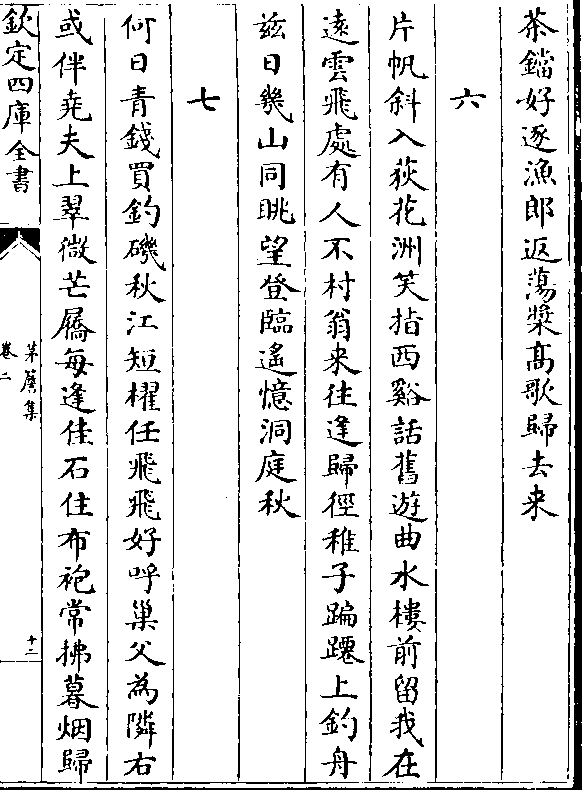 茶鐺好逐漁郎返蕩槳高歌歸去来
六
片帆斜入荻花洲笑指西谿話舊遊曲水樓前留我在
遠雲飛處有人不村翁来往逢歸徑稚子蹁躚上釣舟
兹日幾山同眺望登臨遙憶洞庭秋
七
何日青錢買釣磯秋江短櫂任飛飛好呼巢父為隣右
或伴堯夫上翠微芒屩每逢佳石住布袍常拂暮烟歸
欽定四庫全書
茅簷集
卷二
十二